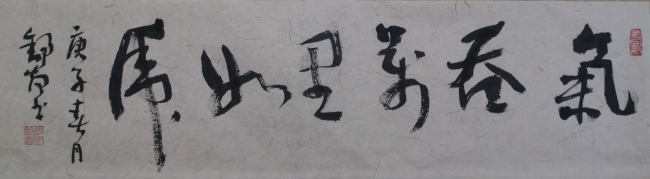 氣吞萬里如虎
庚子春月
書